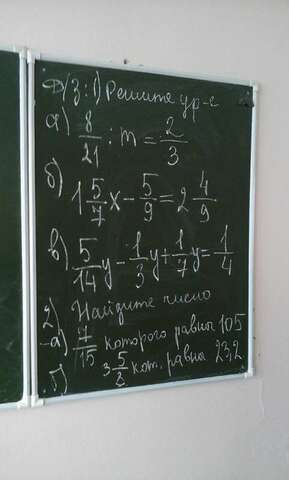 Д/З: 1) Решите ур-е
а) 8/21 : m = 2/3
б) 1 5/7 x - 5/9 = 2 4/9
в) 5/14 y - 1/3 y + 1/7 y = 1/4
2) Найдите число
а) 7/15 которого равны 105
б) 3 5/8 кот. равна 23,2.